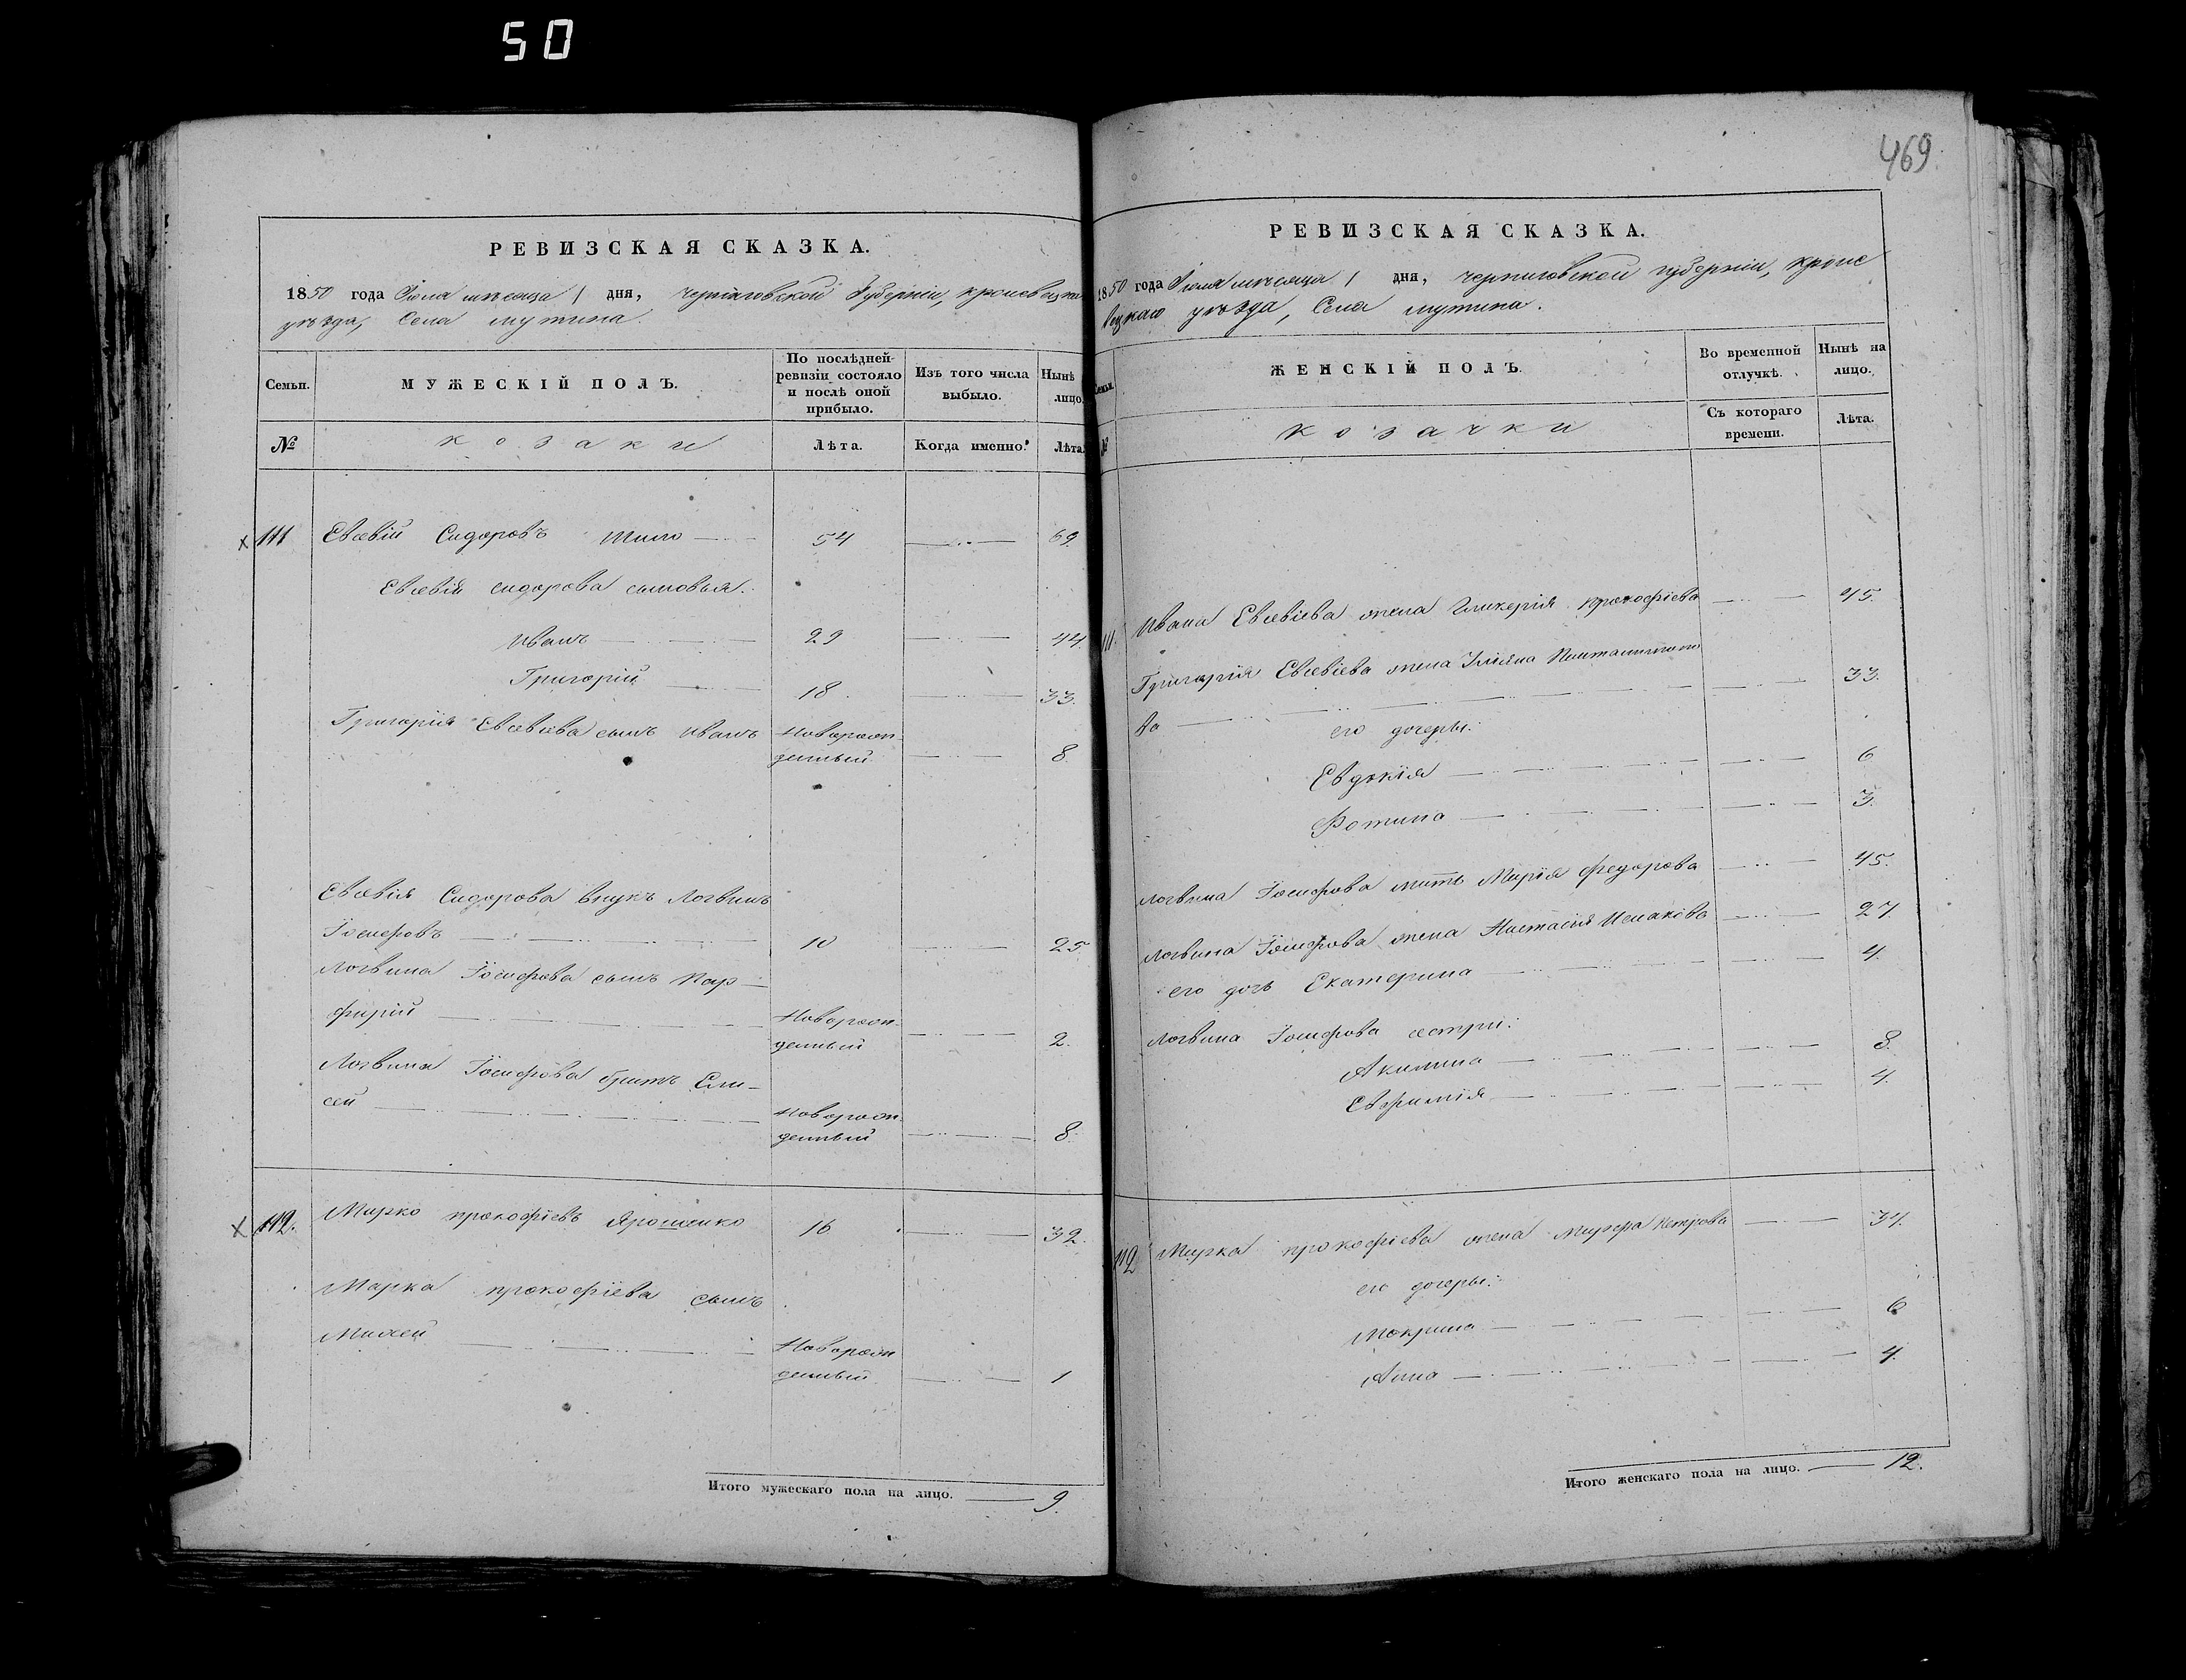 50
469.
РЕВИЗСКАЯ СКАЗКА.
1850 года Июля мѣсяца 1 дня, черниговской Губерніи, кролевецкаго
уѣзда, Села мутина.
Семьи.
МУЖЕСКІЙ ПОЛЪ.
По послѣдней
ревизіи состояло
и послѣ оной
прибыло.
Изъ того числа
выбыло.
Нынѣ
лицо.
№
козаки
Лѣта.
Когда именно.
Лѣта.
111 Евсевій Сидоровъ 54 69.
Евсевія сидорова сыновья.
Иванъ 29 44.
Григорій 18. 33.
Григорія Евсевіева сынъ Иванъ Новорож-
денный 8.
Евсевія Сидорова внукъ Логвинъ
Іосифовъ 10 25.
Логвина Іосифова сынъ Пор-
фирій Новорож-
денный 2.
Логвина Іосифова братъ Ели-
сей Новорож-
денный 8.
112. Марко прокофіевъ Ярошенко 16 32.
Марка прокофіева сынъ
Новорож-
денный 1
Итого мужескаго пола на лицо. 9.
РЕВИЗСКАЯ СКАЗКА.
1850 года Июля мѣсяца 1 дня, черниговской губерніи, кроле
вецкаго уѣзда, Села мутина.
Семьи.
ЖЕНСКІЙ ПОЛЪ.
Во временной
отлучкѣ.
Нынѣ на
лицо.
№
козачки
Съ котораго
времени.
Лѣта.
111. Ивана Евсевіева жена Гликерія прокофіева 45.
Григорія Евсевіева жена
ва 33.
его дочери:
Евдокія 6
Фотина 3.
Логвина Іосифова мать Марія федорова 45.
Логвина Іосифова жена Настасія Исакова 27.
его дочь Екатерина 4.
Логвина Іосифова сестры:
Акилина 8.
Евфимія 4.
112 Марка прокофіева жена Марфа Петрова 34.
его дочери:
Мокрина 6
Анна 4.
Итого женскаго пола на лицо. 12.